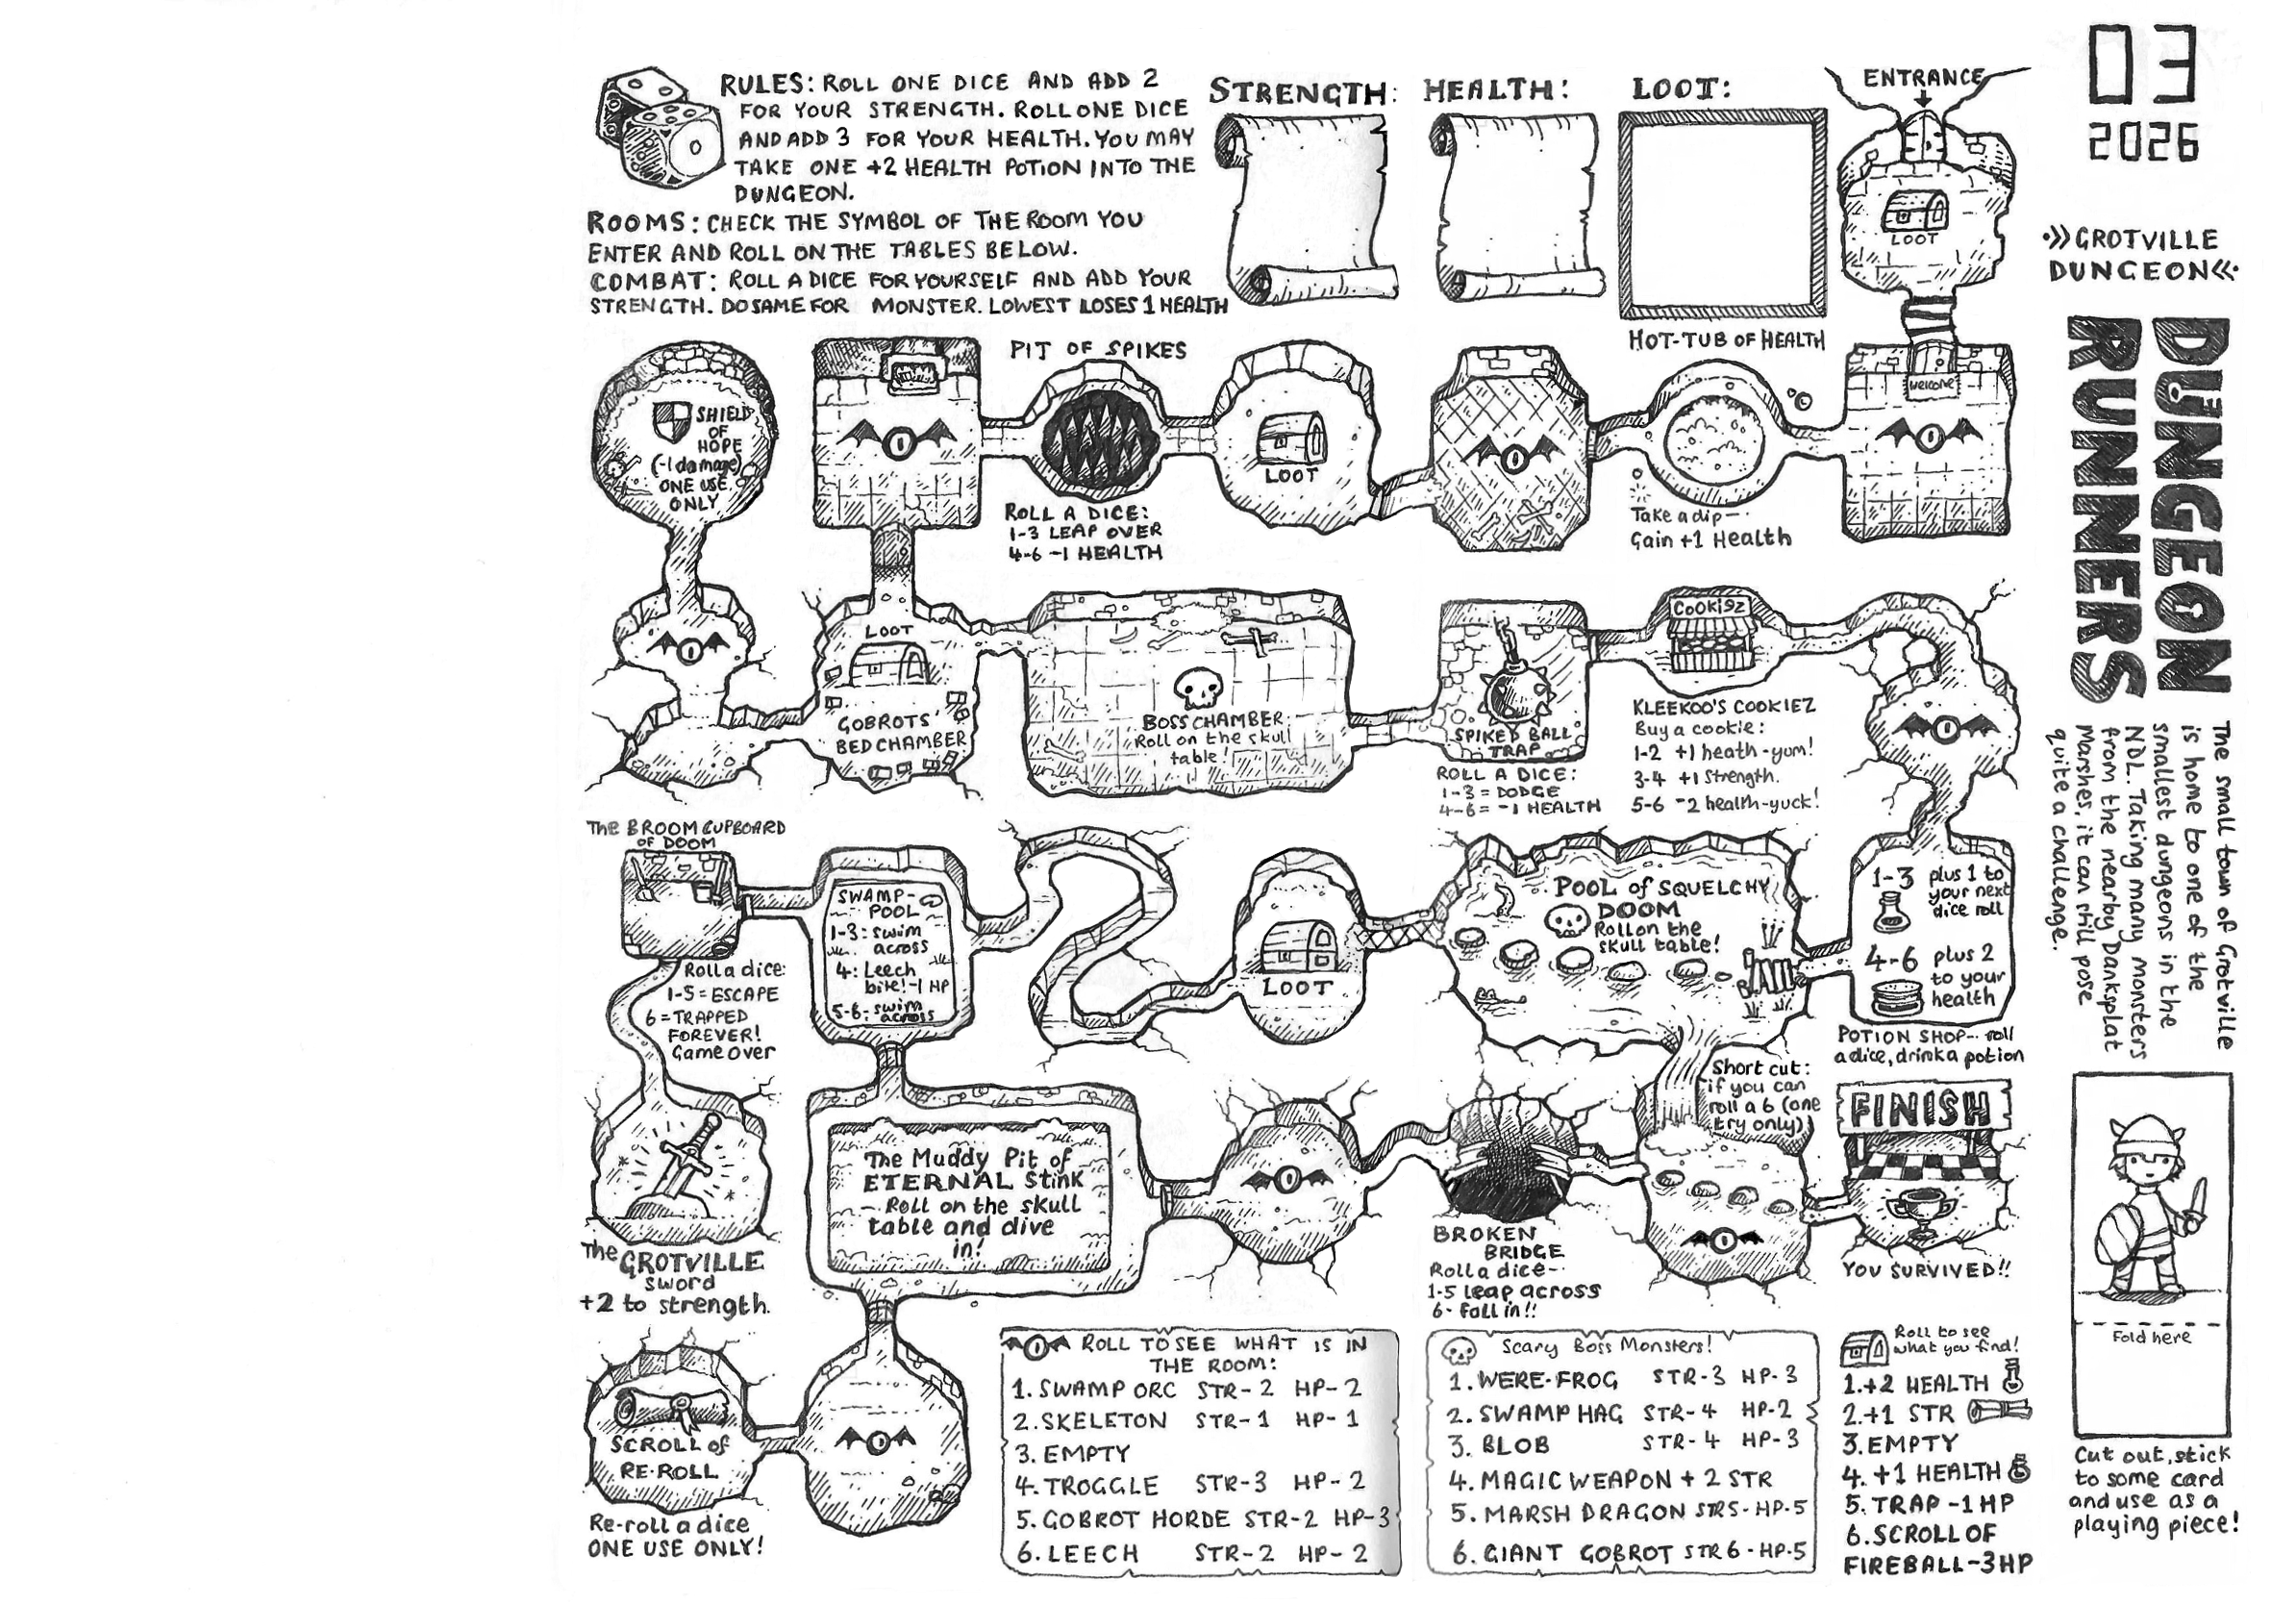 RULES: ROLL ONE DICE AND ADD 2
FOR YOUR STRENGTH. ROLL ONE DICE
AND ADD 3 FOR YOUR HEALTH. YOU MAY
TAKE ONE +2 HEALTH POTION INTO THE
DUNGEON.
ROOMS: CHECK THE SYMBOL OF THE ROOM YOU
ENTER AND ROLL ON THE TABLES BELOW.
COMBAT: ROLL A DICE FOR YOURSELF AND ADD YOUR
STRENGTH. DO SAME FOR MONSTER. LOWEST LOSES 1 HEALTH
STRENGTH:
HEALTH:
LOOT:
ENTRANCE
LOOT
03
2026
GROTVILLE
DUNGEON
DUNGEON
RUNNERS
The small town of Grotville
is home to one of the
smallest dungeons in the
NDL. Taking many monsters
from the nearby Danksplat
Marshes, it can still pose
quite a challenge.
SHIELD
OF
HOPE
(-1 damage)
ONE USE
ONLY
PIT OF SPIKES
ROLL A DICE:
1-3 LEAP OVER
4-6 -1 HEALTH
LOOT
HOT-TUB OF HEALTH
Take a dip--
Gain +1 Health
Welcome
LOOT
GOBROTS'
BEDCHAMBER
BOSS CHAMBER:
Roll on the skull
table!
SPIKED BALL
TRAP
ROLL A DICE:
1-3 = DODGE
4-6 = -1 HEALTH
COOKIEZ
KLEEKOO'S COOKIEZ
Buy a cookie:
1-2 +1 heath-yum!
3-4 +1 strength.
5-6 -2 health-yuck!
The BROOM CUPBOARD
OF DOOM
Roll a dice:
1-5 = ESCAPE
6 = TRAPPED
FOREVER!
Game over
SWAMP-
POOL
1-3: swim
across
4: Leech
bite! -1 HP
5-6: swim
across
LOOT
POOL of SQUELCHY
DOOM
Roll on the
skull table!
1-3 plus 1 to
your next
dice roll
4-6 plus 2
to your
health
POTION SHOP-- roll
a dice, drink a potion
Short cut:
if you can
roll a 6 (one
try only)
FINISH
YOU SURVIVED!!
The GROTVILLE
sword
+2 to strength.
The Muddy Pit of
ETERNAL Stink
Roll on the skull
table and dive
in!
BROKEN
BRIDGE
Roll a dice--
1-5 leap across
6- fall in!!
SCROLL of
RE-ROLL
Re-roll a dice
ONE USE ONLY!
ROLL TO SEE WHAT IS IN
THE ROOM:
1. SWAMP ORC STR-2 HP-2
2. SKELETON STR-1 HP-1
3. EMPTY
4. TROGGLE STR-3 HP-2
5. GOBROT HORDE STR-2 HP-3
6. LEECH STR-2 HP-2
Scary Boss Monsters!
1. WERE-FROG STR-3 HP-3
2. SWAMP HAG STR-4 HP-2
3. BLOB STR-4 HP-3
4. MAGIC WEAPON + 2 STR
5. MARSH DRAGON STR5-HP-5
6. GIANT GOBROT STR6-HP-5
Roll to see
what you find!
1. +2 HEALTH
2. +1 STR
3. EMPTY
4. +1 HEALTH
5. TRAP -1 HP
6. SCROLL OF
FIREBALL -3HP
Fold here
Cut out, stick
to some card
and use as a
playing piece!